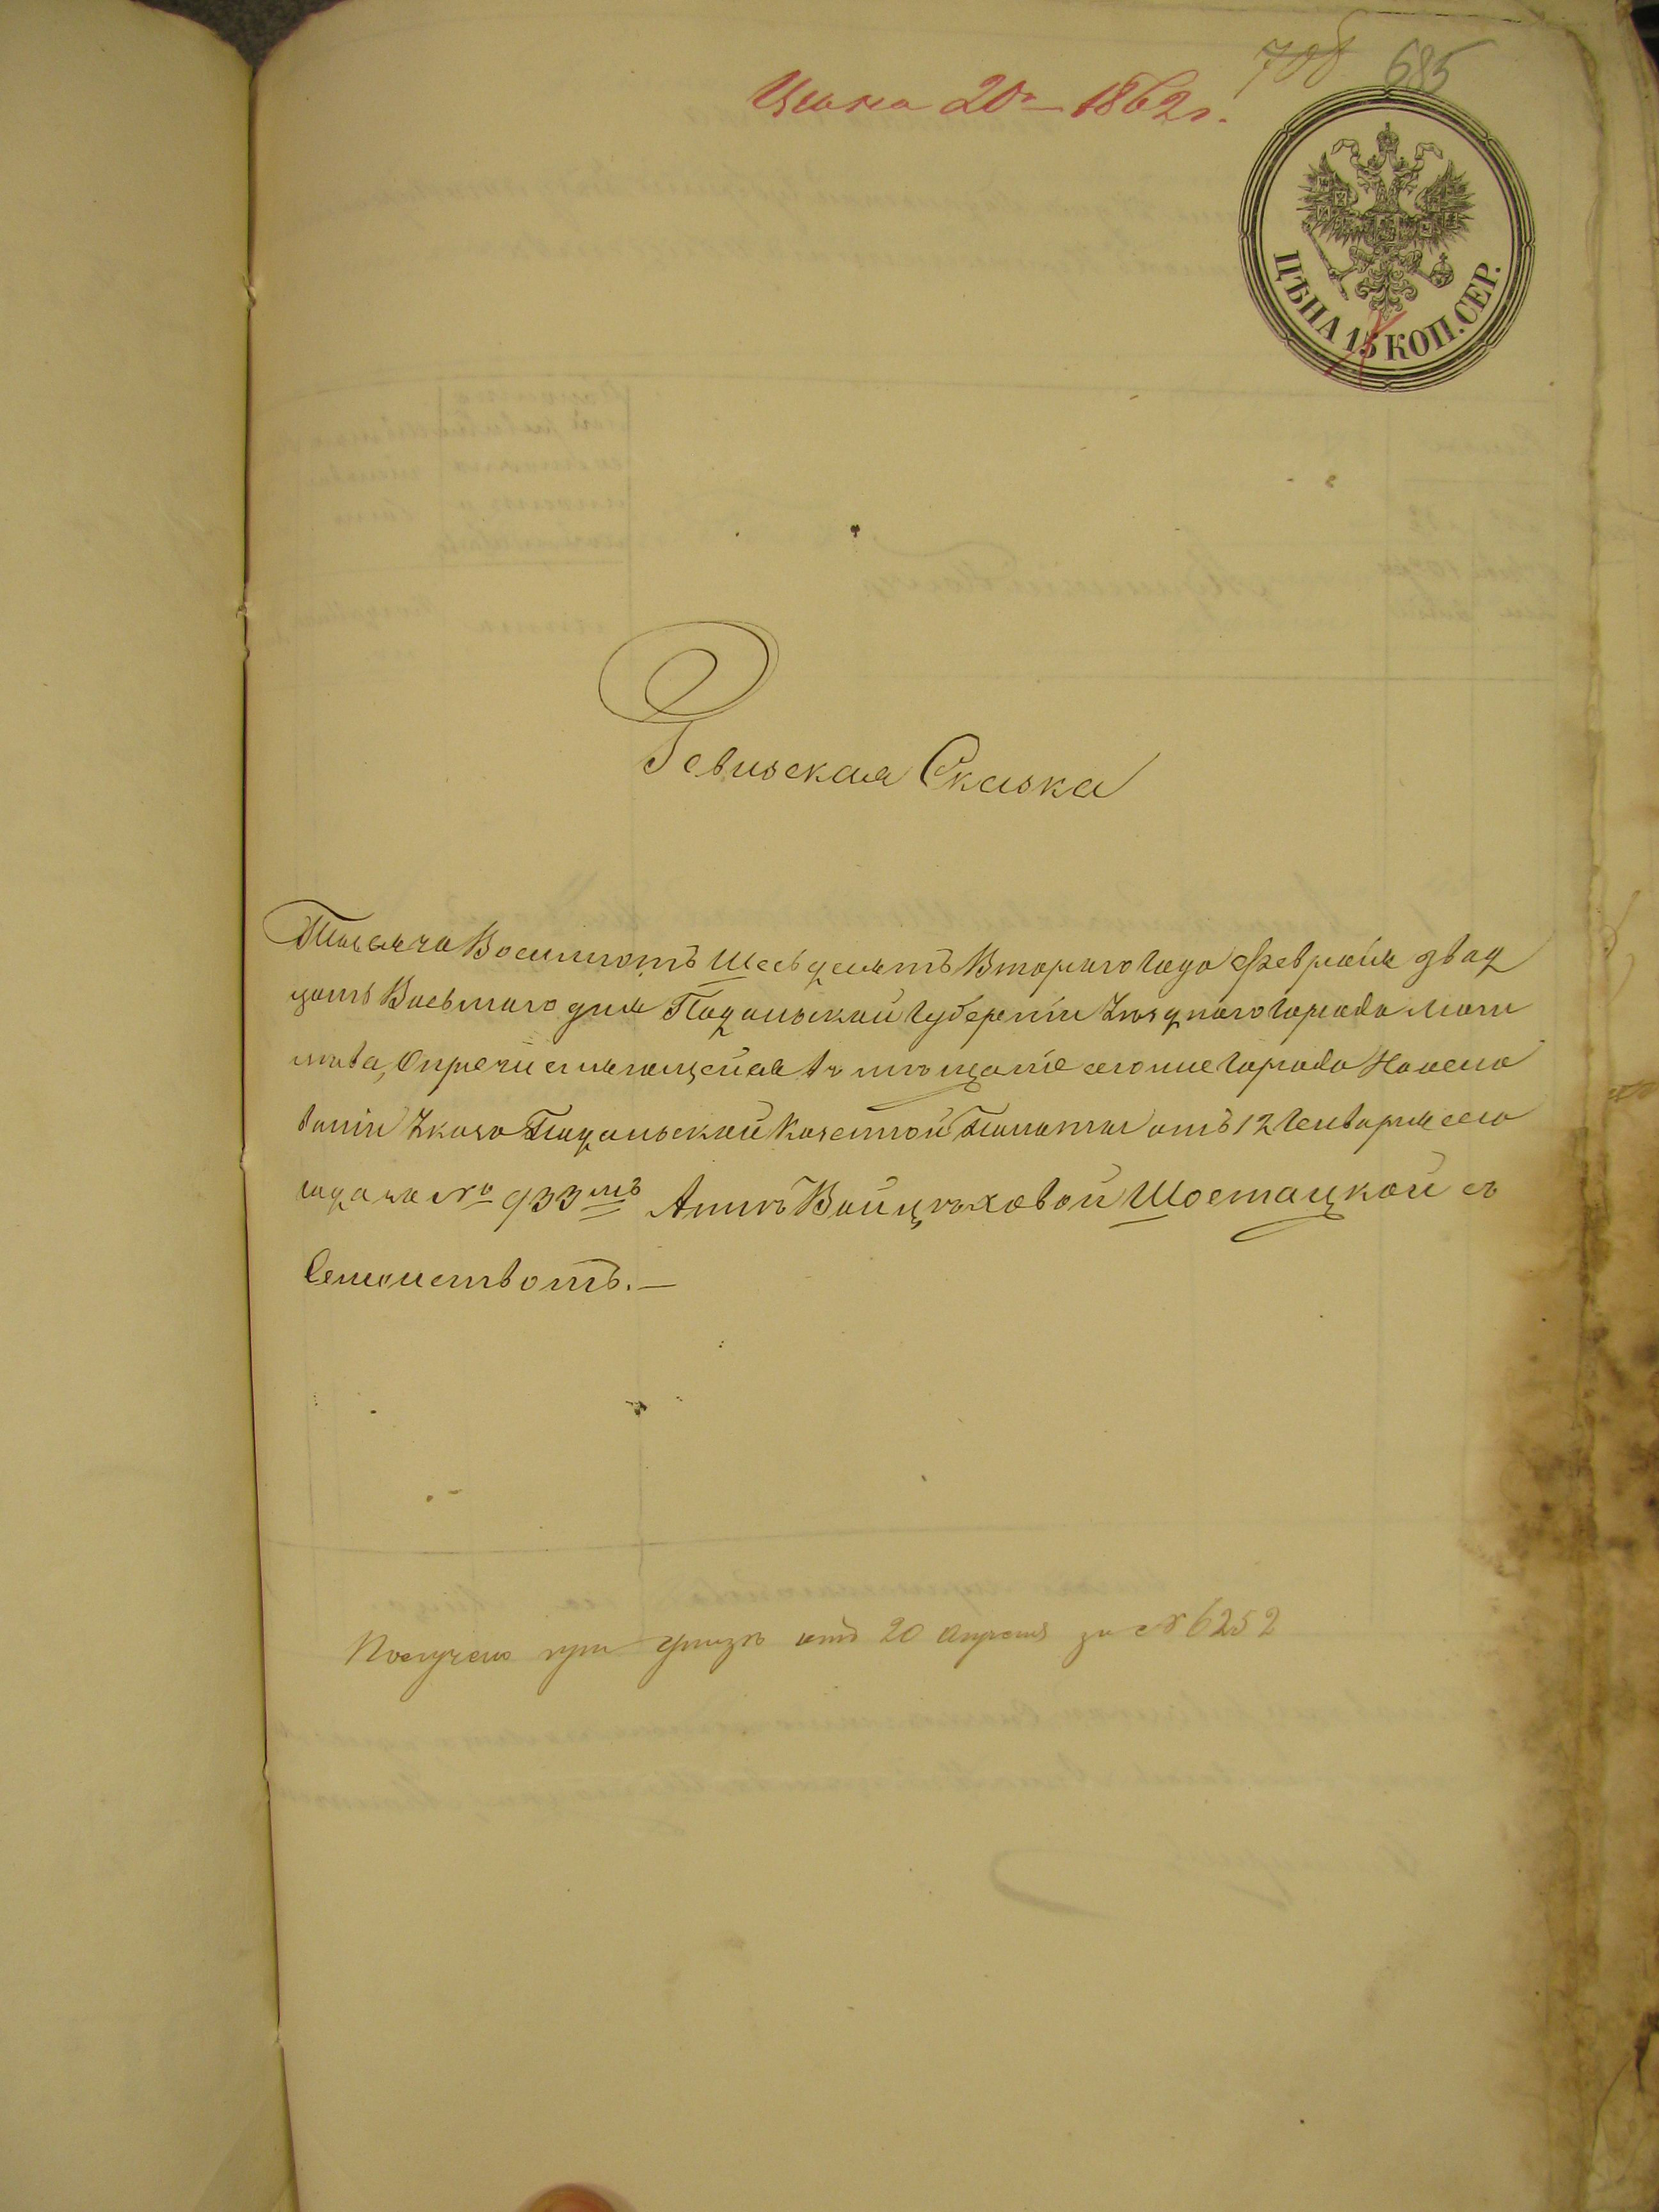 706 685
Июня 20 – 1862 г.
ЦѢНА 15 КОП. СЕР.
Ревизская Сказка
Тысяча Восемсотъ Шесьдесятъ Втораго года Февраля двад
цать Восьмаго дня Подольской Губерніи Уѣзднаго города Моги
лева, О причисляющейся въ мѣщане сегоже города На осно
ваніи Указа Подольской Казенной Палаты отъ 12 Генваря сего
года за № 933мъ Аннѣ Войцѣховой Шостацкой съ
Семействомъ. —
Получено при Указѣ отъ 20 Апреля за № 6252